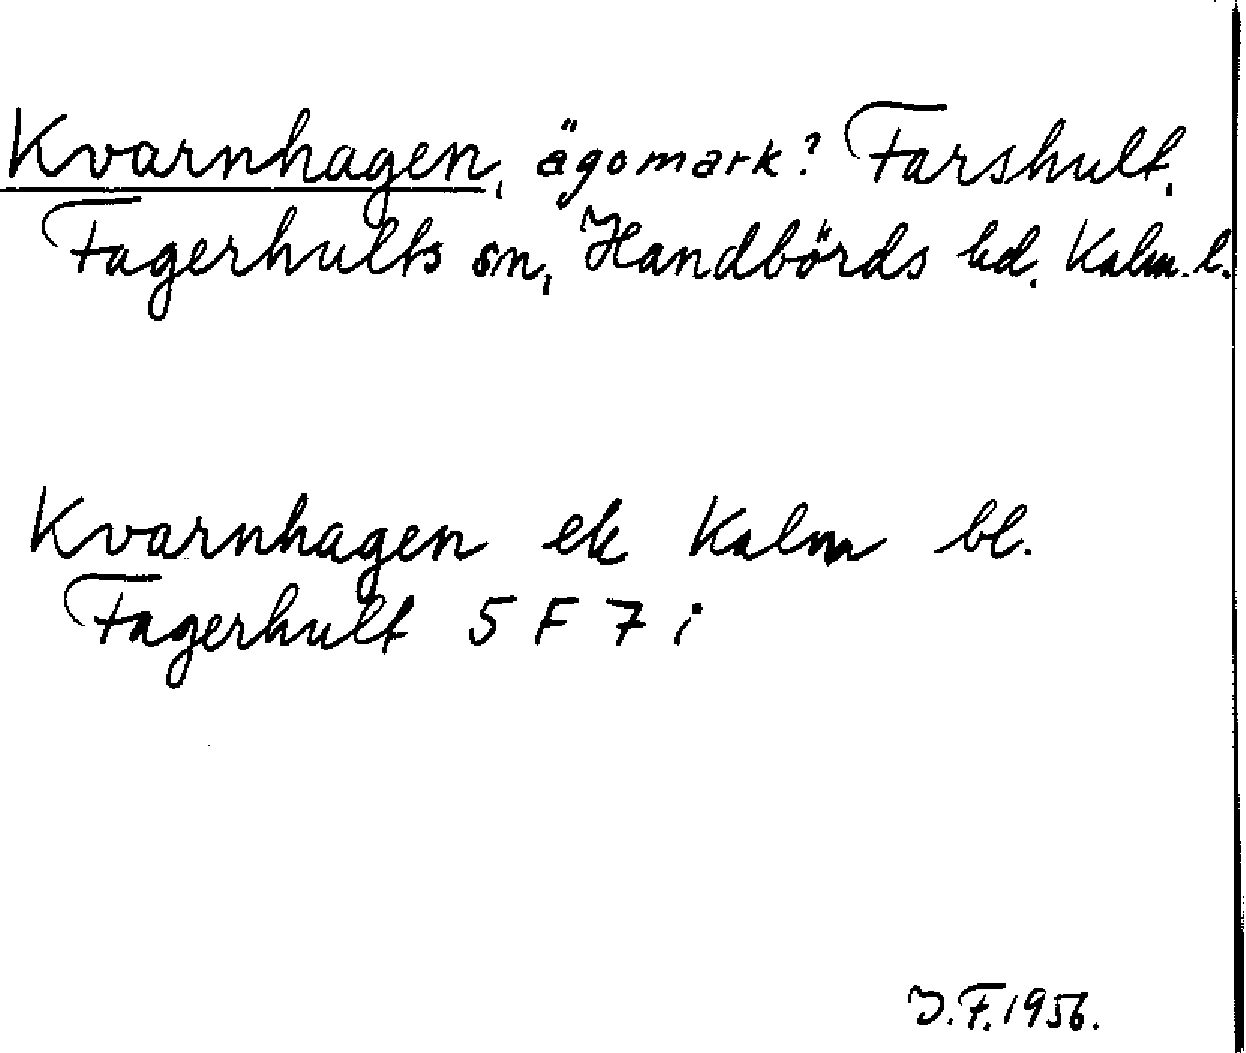 Kvarnhagen, ägomark? Farshult,
Fagerhults sn, Handbörds hd. Kalm. l.
Kvarnhagen ek Kalm bl.
Fagerhult 5 F 7 i
J.F. 1956.